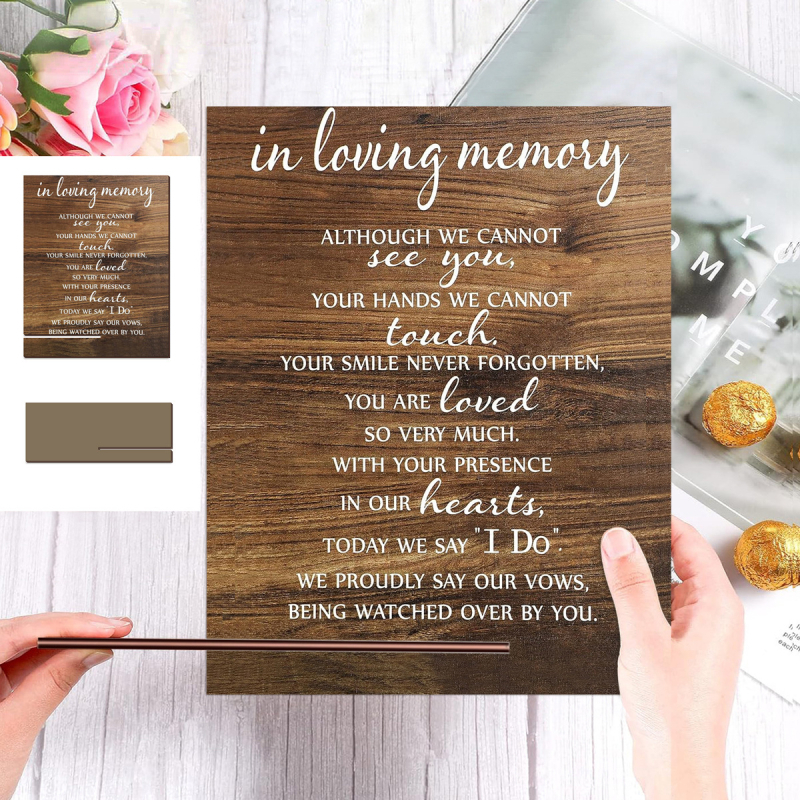 in loving memory
ALTHOUGH WE CANNOT
see you,
YOUR HANDS WE CANNOT
touch.
YOUR SMILE NEVER FORGOTTEN,
YOU ARE loved
SO VERY MUCH.
WITH YOUR PRESENCE
IN OUR hearts,
TODAY WE SAY "I Do".
WE PROUDLY SAY OUR VOWS,
BEING WATCHED OVER BY YOU.
in loving memory
ALTHOUGH WE CANNOT
see you,
YOUR HANDS WE CANNOT
touch.
YOUR SMILE NEVER FORGOTTEN,
YOU ARE loved
SO VERY MUCH.
WITH YOUR PRESENCE
IN OUR hearts,
TODAY WE SAY "I Do"
WE PROUDLY SAY OUR VOWS,
BEING WATCHED OVER BY YOU.
ME